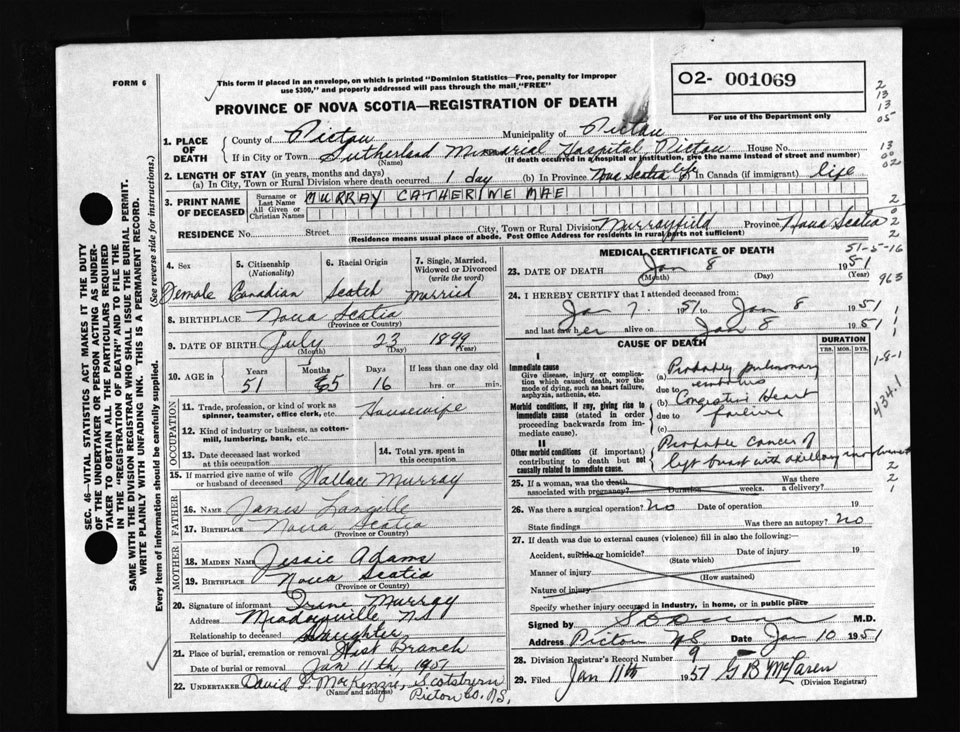 FORM 6
This form if placed in an envelope, on which is printed "Dominion Statistics—Free, penalty for improper
use $300," and properly addressed will pass through the mail "FREE"
PROVINCE OF NOVA SCOTIA—REGISTRATION OF DEATH
O2- 001069
For use of the Department only
1. PLACE OF DEATH
County of Pictou Municipality of Pictou
If in City or Town Sutherland Memorial Hospital, Pictou House No.
(If death occurred in a hospital or institution, give the name instead of street and number)
2. LENGTH OF STAY (in years, months and days)
(a) In City, Town or Rural Division where death occurred 1 day (b) In Province Nova Scotia life in Canada (if immigrant) life
3. PRINT NAME OF DECEASED
Surname or Last Name MURRAY CATHERINE MAE
All Given or Christian Names
RESIDENCE No. Street City, Town or Rural Division Murrayfield Province Nova Scotia
(Residence means usual place of abode. Post Office Address for residents in rural parts not sufficient)
4. Sex Female
5. Citizenship (Nationality) Canadian
6. Racial Origin Scotch
7. Single, Married, Widowed or Divorced (write the word) Married
8. BIRTHPLACE Nova Scotia
(Province or Country)
9. DATE OF BIRTH July 23 1899
(Month) (Day) (Year)
10. AGE in Years Months Days If less than one day old
51 5 16 hrs. or min.
OCCUPATION
11. Trade, profession, or kind of work as spinner, teamster, office clerk, etc. Housewife
12. Kind of industry or business, as cotton-mill, lumbering, bank, etc.
13. Date deceased last worked at this occupation
14. Total yrs. spent in this occupation
15. If married give name of wife or husband of deceased Wallace Murray
FATHER
16. NAME James Langille
17. BIRTHPLACE Nova Scotia
(Province or Country)
MOTHER
18. MAIDEN NAME Jessie Adams
19. BIRTHPLACE Nova Scotia
(Province or Country)
20. Signature of informant Irene Murray
Address Meadowville, N.S.
Relationship to deceased Daughter
21. Place of burial, cremation or removal West Branch
Date of burial or removal Jan 11th, 1951
22. UNDERTAKER David F. MacKenzie, Scotsburn
(Name and address) Pictou Co. N.S.
MEDICAL CERTIFICATE OF DEATH
23. DATE OF DEATH Jan 8 1951
(Month) (Day) (Year)
24. I HEREBY CERTIFY that I attended deceased from:
Jan 7 1951 to Jan 8 1951
and last saw her alive on Jan 8 1951
CAUSE OF DEATH
DURATION
YRS. MOS. DYS.
I
Immediate cause
Give disease, injury or complication which caused death, NOT the mode of dying, such as heart failure, asphyxia, asthenia, etc.
(a) Probably pulmonary embolus
due to
Morbid conditions, if any, giving rise to immediate cause (stated in order proceeding backwards from immediate cause).
(b) Congestive Heart failure
due to
(c)
II
Other morbid conditions (if important) contributing to death but not causally related to immediate cause.
Probable cancer of
left breast with axillary involvement
25. If a woman, was the death associated with pregnancy? Duration weeks. Was there a delivery?
26. Was there a surgical operation? No Date of operation 19
State findings Was there an autopsy? No
27. If death was due to external causes (violence) fill in also the following:
Accident, suicide or homicide? Date of injury 19
(State which)
Manner of injury
(How sustained)
Nature of injury
Specify whether injury occurred in industry, in home, or in public place
Signed by M.D.
Address Pictou N.S. Date Jan 10 1951
28. Division Registrar's Record Number 9
29. Filed Jan 11th 1951 G B McLaren
(Division Registrar)
SEC. 46—VITAL STATISTICS ACT MAKES IT THE DUTY
OF THE UNDERTAKER OR PERSON ACTING AS UNDER-
TAKER TO OBTAIN ALL THE PARTICULARS REQUIRED
IN THE "REGISTRATION OF DEATH" AND TO FILE THE
SAME WITH THE DIVISION REGISTRAR WHO SHALL ISSUE THE BURIAL PERMIT.
WRITE PLAINLY WITH UNFADING INK. THIS IS A PERMANENT RECORD.
Every item of information should be carefully supplied.
(See reverse side for instructions.)
2
13
13
05
13
00
02
2
0
2
2
51-5-16
963
1
1
1-8-1
434.1
2
2
1